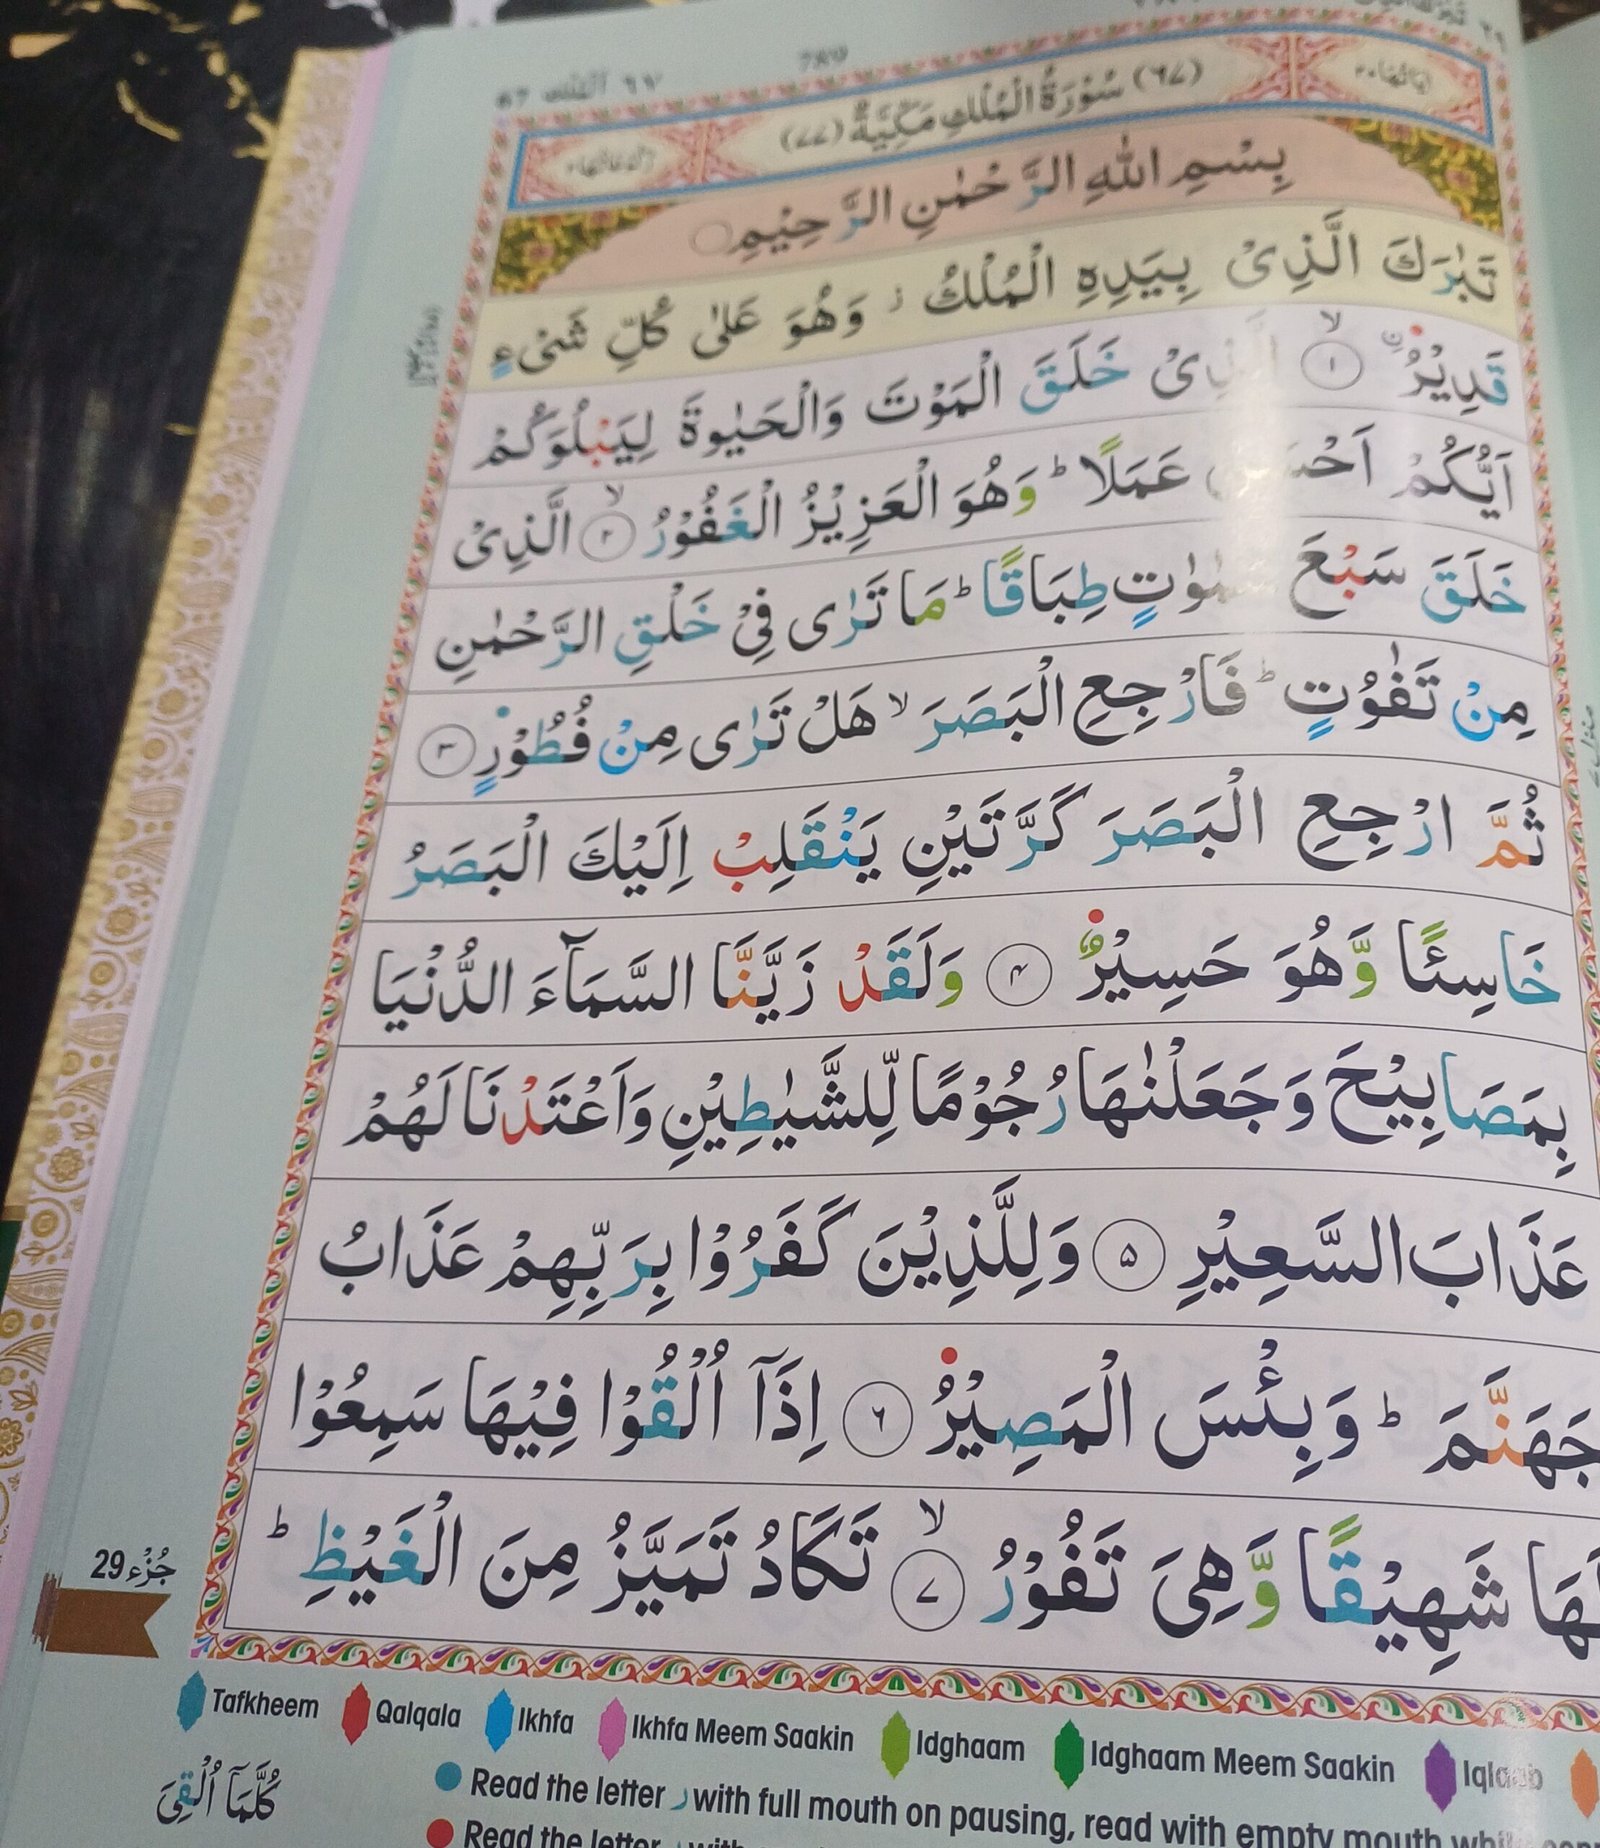 67 الملك ٦٧
789
(٦٧) سُوْرَةُ الْمُلْكِ مَكِّيَّةٌ (٧٧)
بِسْمِ اللهِ الرَّحْمٰنِ الرَّحِيْمِ
تَبٰرَكَ الَّذِىْ بِيَدِهِ الْمُلْكُ ز وَهُوَ عَلٰى كُلِّ شَىْءٍ
قَدِيْرُ ۙ ١ خَلَقَ الْمَوْتَ وَالْحَيٰوةَ لِيَبْلُوَكُمْ
اَيُّكُمْ عَمَلًا ؕ وَهُوَ الْعَزِيْزُ الْغَفُوْرُ ۙ ٢ الَّذِىْ
خَلَقَ سَبْعَ طِبَاقًا ؕ مَا تَرٰى فِىْ خَلْقِ الرَّحْمٰنِ
مِنْ تَفٰوُتٍ ؕ فَارْجِعِ الْبَصَرَ ۙ هَلْ تَرٰى مِنْ فُطُوْرٍ ٣
ثُمَّ ارْجِعِ الْبَصَرَ كَرَّتَيْنِ يَنْقَلِبْ اِلَيْكَ الْبَصَرُ
خَاسِئًا وَّهُوَ حَسِيْرٌ ٤ وَلَقَدْ زَيَّنَّا السَّمَآءَ الدُّنْيَا
بِمَصَابِيْحَ وَجَعَلْنٰهَا رُجُوْمًا لِّلشَّيٰطِيْنِ وَاَعْتَدْنَا لَهُمْ
عَذَابَ السَّعِيْرِ ٥ وَلِلَّذِيْنَ كَفَرُوْا بِرَبِّهِمْ عَذَابُ
جَهَنَّمَ ؕ وَبِئْسَ الْمَصِيْرُ ٦ اِذَآ اُلْقُوْا فِيْهَا سَمِعُوْا
لَهَا شَهِيْقًا وَّهِىَ تَفُوْرُ ۙ ٧ تَكَادُ تَمَيَّزُ مِنَ الْغَيْظِ ؕ
جُزْء 29
Tafkheem Qalqala Ikhfa Ikhfa Meem Saakin Idghaam Idghaam Meem Saakin Iqlaab
كُلَّمَآ اُلْقِىَ
Read the letter ر with full mouth on pausing, read with empty mouth
Read the letter